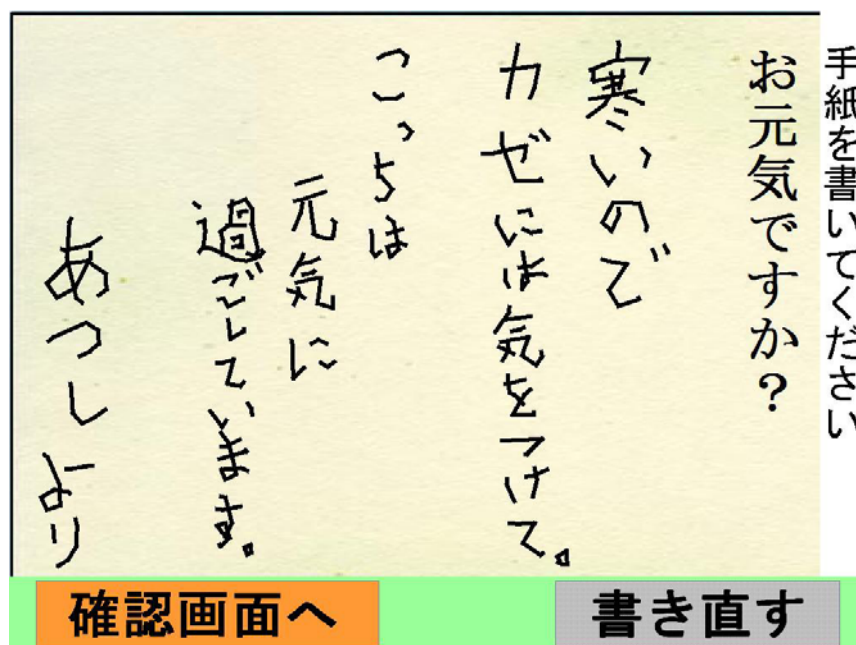 手紙を書いてください
お元気ですか？
寒いので
カゼには気をつけて。
こっちは
元気に
過ごしています。
あつしより
確認画面へ
書き直す